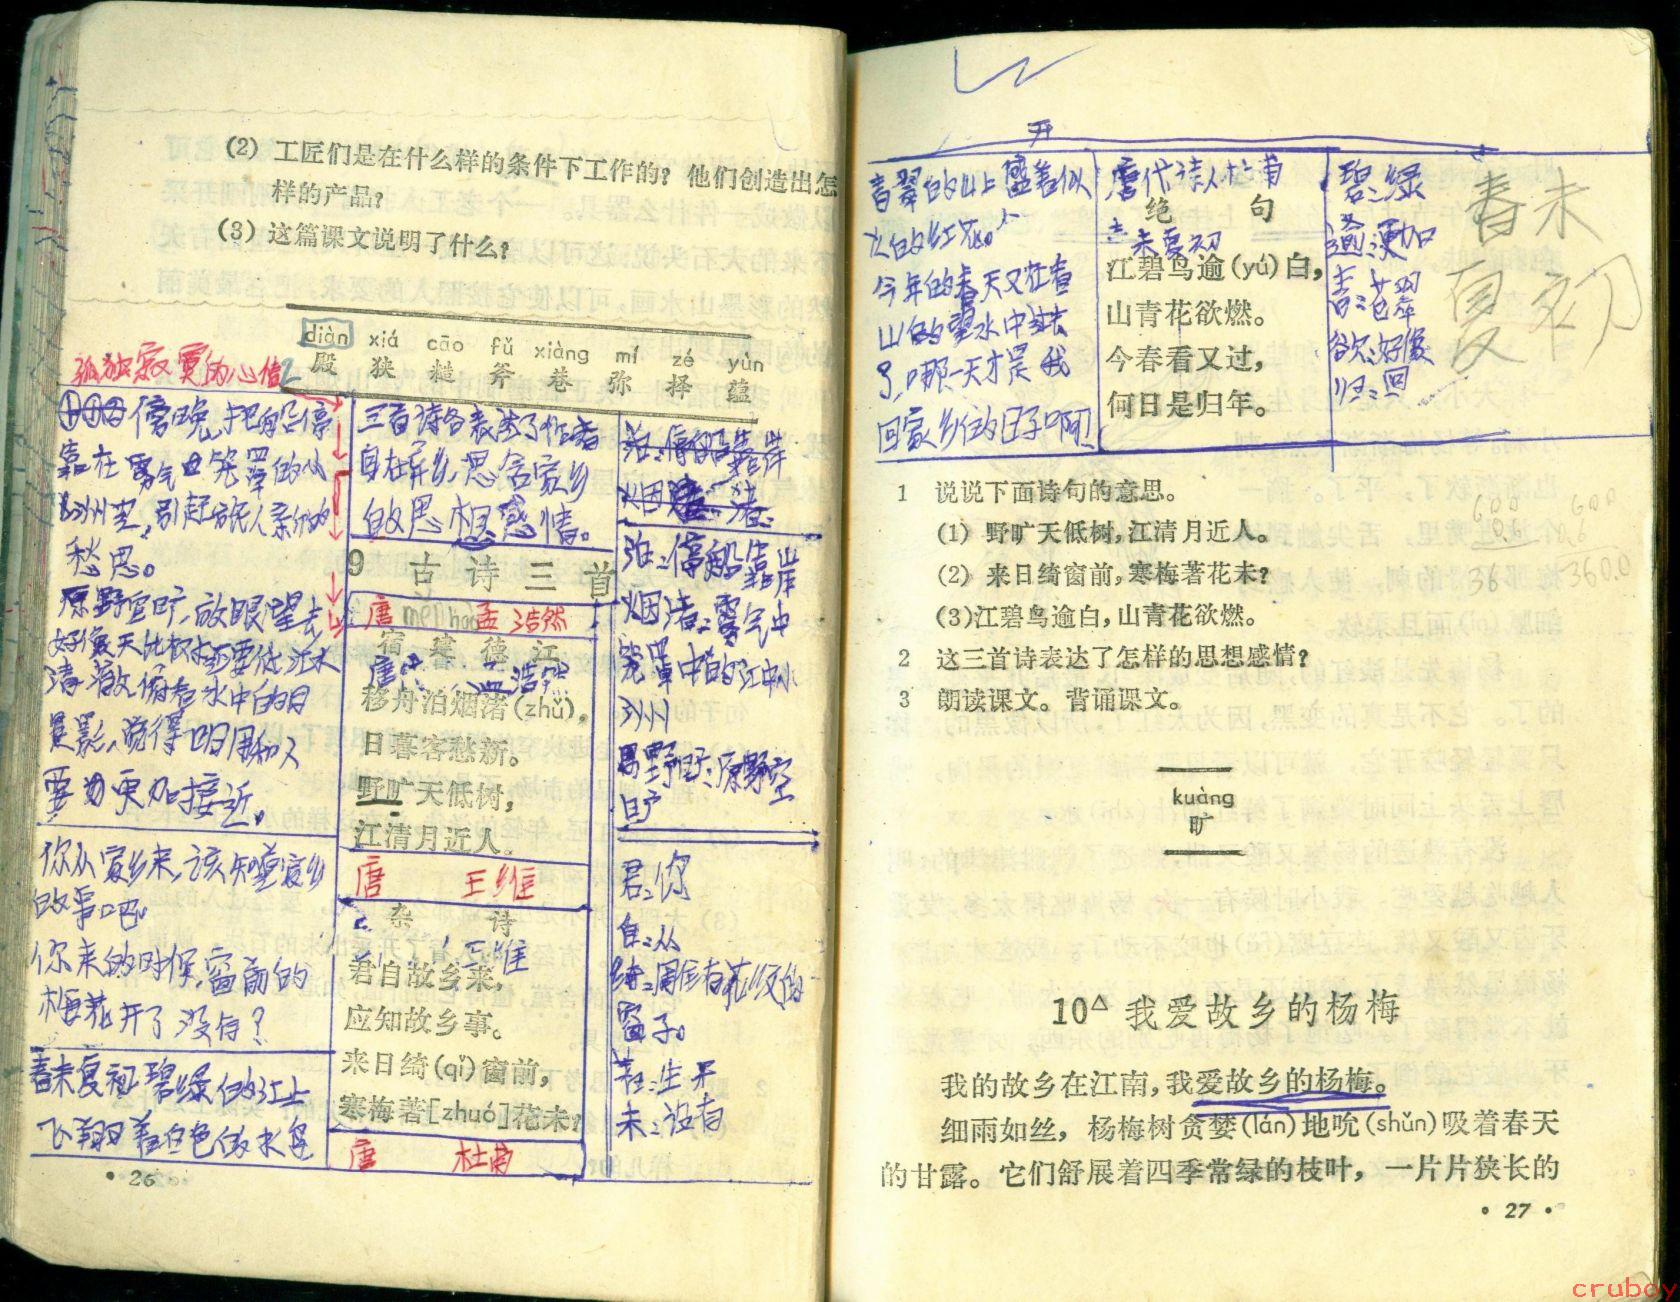 (2) 工匠们是在什么样的条件下工作的？他们创造出怎
样的产品？
(3) 这篇课文说明了什么？
diàn xiá cāo fǔ xiàng mí zé yùn
殿 狭 糙 斧 巷 弥 择 蕴
孤独寂寞的心情
傍晚，把船停
靠在雾气笼罩的小
愁思。
原野空旷，放眼望去
好像天比树还要低江水
清澈俯看水中的月
觉得明月和人
更加接近。
你从家乡来，该知道家乡
的事吧。
你来的时候，窗前的
梅花开了没有？
春末夏初碧绿的江上
飞翔着白色的水鸟
三首诗各表达了作者
身在异乡，思念家乡
的思想感情。
9 古诗三首
唐 孟浩然
宿建德江
移舟泊烟渚(zhǔ)，
日暮客愁新。
野旷天低树，
江清月近人。
唐 王维
杂诗
王维
君自故乡来，
应知故乡事。
来日绮(qǐ)窗前，
寒梅著[zhuó]花未？
唐 杜甫
泊：停船靠岸
泊：停船靠岸
烟渚：雾气中
笼罩中的江中小
洲
野旷：原野空
旷
君：你
自：从
绮：周围有花纹的
窗子。
著：生开
未：没有
• 26
开
青翠的山上盛着似
火的红花。
今年的春天又在看
山的望水中过去
了，哪一天才是我
回家乡住的日子啊
唐代诗人杜甫
绝句
末夏初
江碧鸟逾(yú)白，
山青花欲燃。
今春看又过，
何日是归年。
碧：绿
逾：更加
青：苍翠
欲：好像
归：回
春末
夏初
1 说说下面诗句的意思。
(1) 野旷天低树，江清月近人。
(2) 来日绮窗前，寒梅著花未？
(3) 江碧鸟逾白，山青花欲燃。
2 这三首诗表达了怎样的思想感情？
3 朗读课文。背诵课文。
600
0.6
36
600
0.6
360.0
kuàng
旷
10△ 我爱故乡的杨梅
我的故乡在江南，我爱故乡的杨梅。
细雨如丝，杨梅树贪婪(lán)地吮(shǔn)吸着春天
的甘露。它们舒展着四季常绿的枝叶，一片片狭长的
• 27 •
cruboy